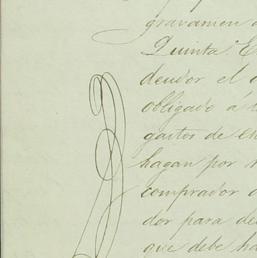 gravamen
Quinta E
deudor el
obligado á
gastos de en
hagan por
comprador
dor para de
que debe ha